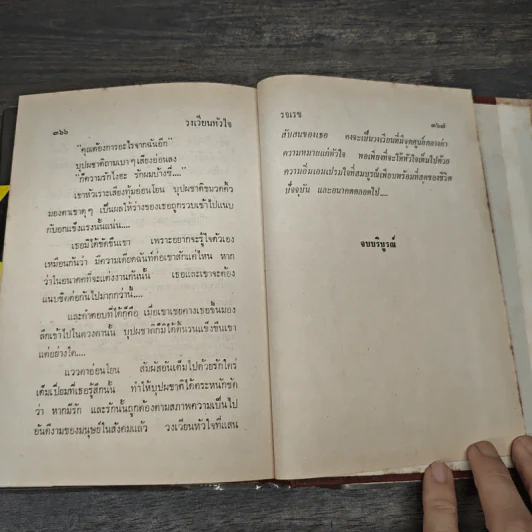 ๓๖๖ วงเวียนหัวใจ
"คุณต้องการอะไรจากฉันอีก"
บุปผชาติถามเบา ๆ เสียงอ่อนลง
"ก็ความรักไงฮะ รักผมบ้างซี...."
เขาหัวเราะเสียงทุ้มอ่อนโยน บุปผชาติขมวดคิ้ว
มองตาเขาดุ ๆ เป็นผลให้ร่างของเธอถูกรวบเข้าไปแนบ
กับอกแข็งแรงนั้นแน่น....
เธอมิได้ขัดขืนเขา เพราะอยากจะรู้ใจตัวเอง
เหมือนกันว่า มีความเดียดฉันท์ต่อเขาสักแค่ไหน หาก
ว่าในอนาคตที่จะแต่งงานกันนั้น เธอและเขาจะต้อง
แนบชิดต่อกันไปมากกว่านี้....
และคำตอบที่ได้ก็คือ เมื่อเขาเชยคางเธอขึ้นมอง
ลึกเข้าไปในดวงตานั้น บุปผาชาติก็มิได้หวั่นแข็งขืนเขา
แต่อย่างใด....
แววตาอ่อนโยน สัมผัสอันเต็มไปด้วยรักใคร่
เต็มเปี่ยมที่เธอรู้สึกนั้น ทำให้บุปผชาติได้ตระหนักชัด
ว่า หากมีรัก และรักนั้นถูกต้องตามสภาพความเป็นไป
อันดีงามของมนุษย์ในสังคมแล้ว วงเวียนหัวใจที่แสน
รจเรข ๓๖๗
สับสนของเธอ คงจะเป็นวงเวียนที่มีจุดศูนย์กลางค่า
ความหมายแก่หัวใจ พอเพียงที่จะให้หัวใจเต็มไปด้วย
ความอิ่มเอมเปรมใจที่สมบูรณ์เพียบพร้อมที่สุดของชีวิต
ปัจจุบัน และอนาคตตลอดไป....
จบบริบูรณ์